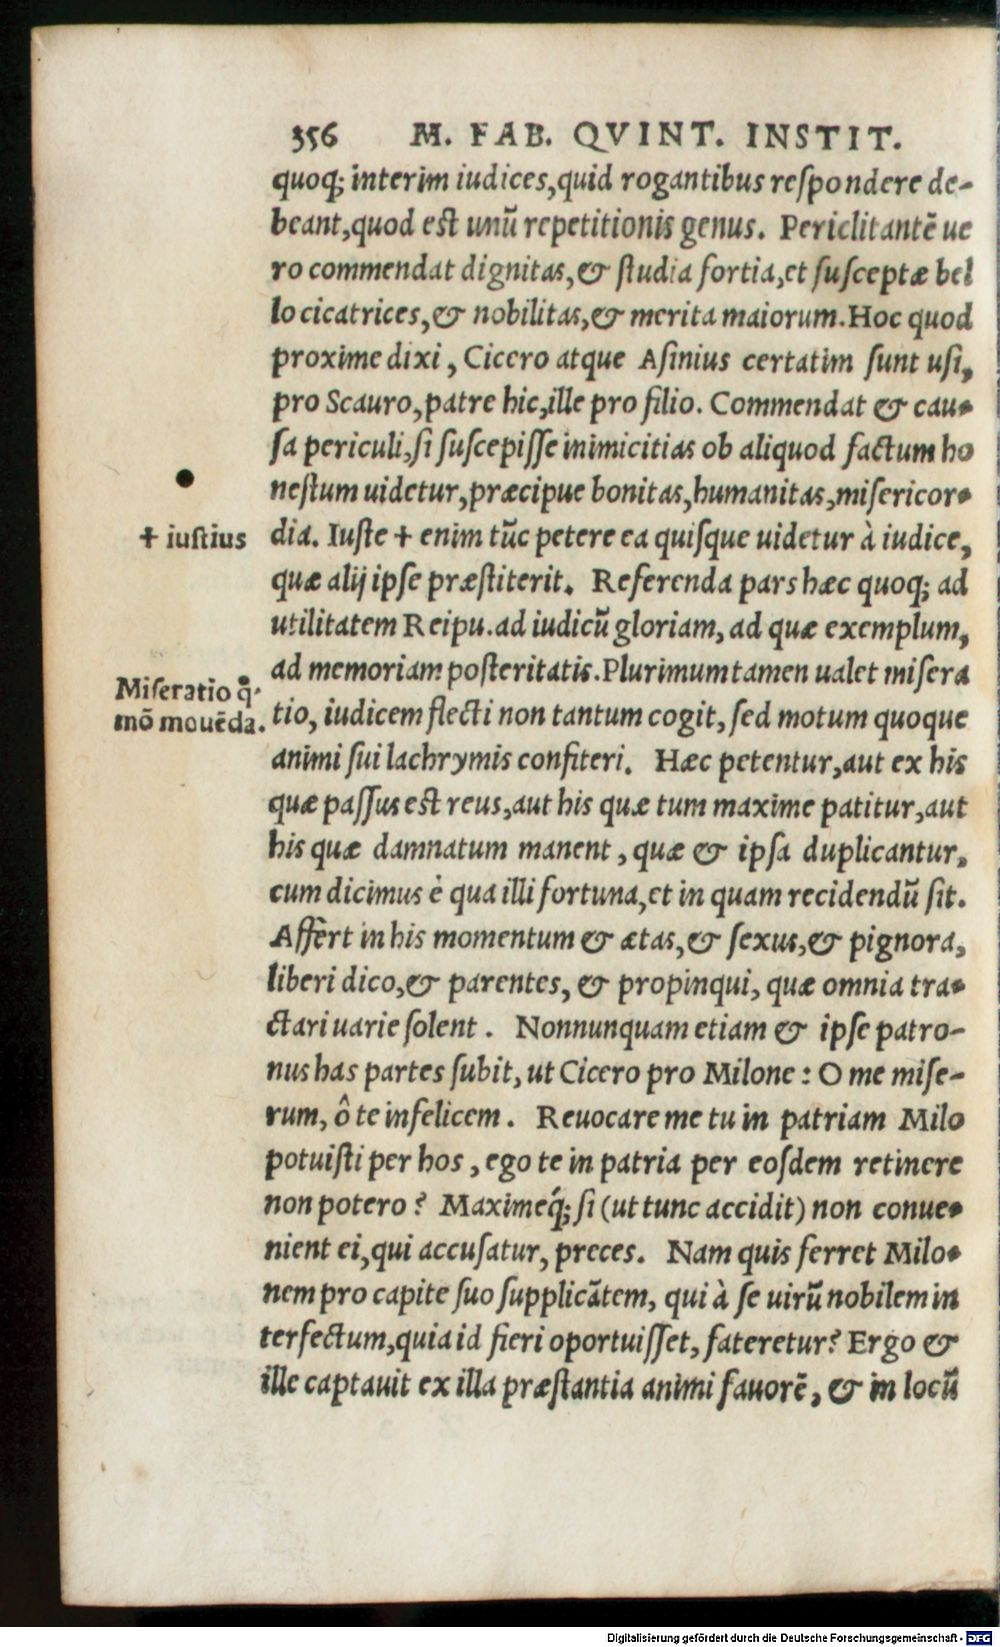 356 M. FAB. QVINT. INSTIT.
quoq; interim iudices,quid rogantibus reſpondere de-
beant,quod eſt unũ repetitionis genus. Periclitantẽ ue
ro commendat dignitas,& ſtudia fortia,et ſuſceptæ bel
lo cicatrices,& nobilitas,& merita maiorum.Hoc quod
proxime dixi, Cicero atque Aſinius certatim ſunt uſi,
pro Scauro,patre hic,ille pro filio. Commendat & cau-
ſa periculi,ſi ſuſcepiſſe inimicitias ob aliquod factum ho
neſtum uidetur,præcipue bonitas,humanitas,miſericor-
† iuſtius
dia. Iuſte † enim tũc petere ea quiſque uidetur à iudice,
quæ alij ipſe præſtiterit. Referenda pars hæc quoq; ad
utilitatem Reipu.ad iudicũ gloriam, ad quæ exemplum,
ad memoriam poſteritatis.Plurimum tamen ualet miſera
Miſeratio q̃
mõ mouẽda.
tio, iudicem flecti non tantum cogit, ſed motum quoque
animi ſui lachrymis confiteri. Hæc petentur,aut ex his
quæ paſſus eſt reus,aut his quæ tum maxime patitur,aut
his quæ damnatum manent, quæ & ipſa duplicantur,
cum dicimus è qua illi fortuna,et in quam recidendũ ſit.
Affèrt in his momentum & ætas,& ſexus,& pignora,
liberi dico,& parentes, & propinqui, quæ omnia tra-
ctari uarie ſolent. Nonnunquam etiam & ipſe patro-
nus has partes ſubit, ut Cicero pro Milone: O me miſe-
rum, ô te infelicem. Reuocare me tu in patriam Milo
potuiſti per hos, ego te in patria per eoſdem retinere
non potero? Maximeq́; ſi (ut tunc accidit) non conue-
nient ei,qui accuſatur, preces. Nam quis ferret Milo-
nem pro capite ſuo ſupplicãtem, qui à ſe uirũ nobilem in
terfectum,quia id fieri oportuiſſet, fateretur? Ergo &
ille captauit ex illa præſtantia animi fauorẽ, & in locũ
Digitalisierung gefördert durch die Deutsche Forschungsgemeinschaft - DFG